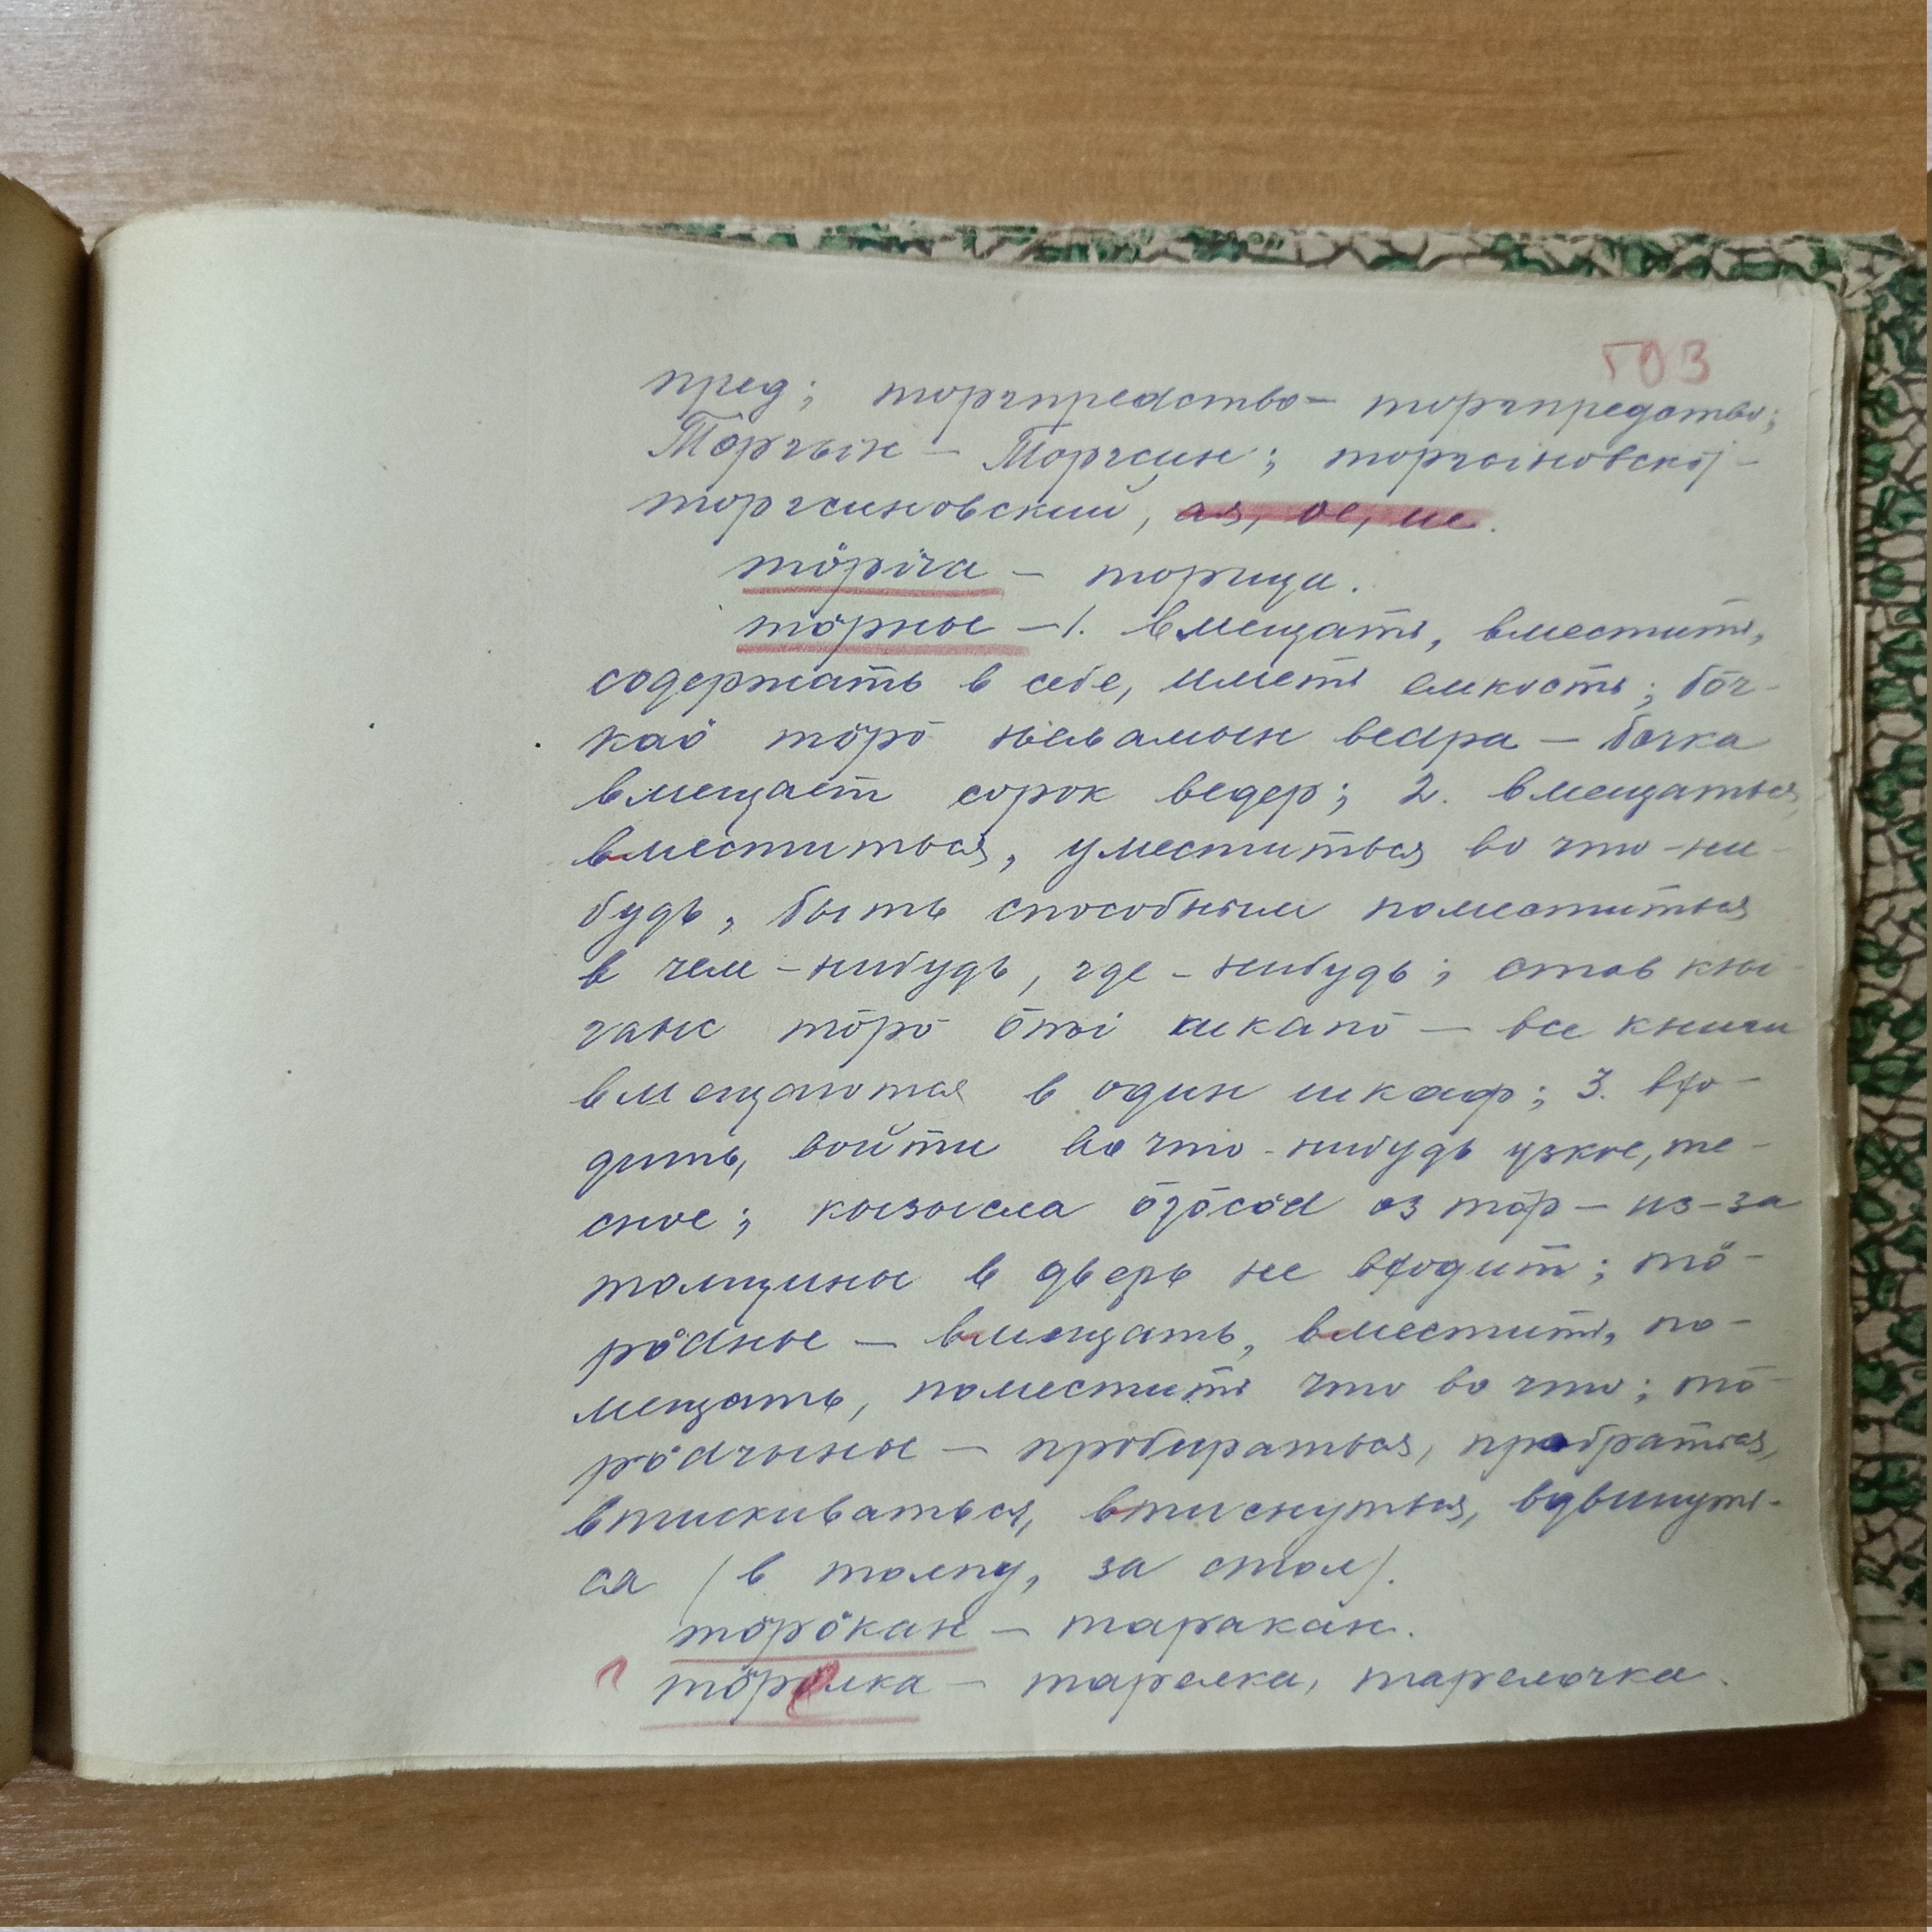 503
пред; торгпредство — торгпредство;
Торгсін — Торгсин; торгсіновскӧј —
торгсиновский, ая, ое, ие.
тӧріча — торица.
тӧрны — 1. вмещать, вместить,
содержать в себе, иметь емкость; бӧч-
каӧ тӧрӧ нелямын ведра — бочка
вмещает сорок ведер; 2. вмещаться,
вместиться, уместиться во что-ни-
будь, быть способным поместиться
в чем-нибудь, где-нибудь; став кні-
гаыс тӧрӧ ӧті шкапӧ — все книги
вмещаются в один шкаф; 3. вхо-
дить, войти во что-нибудь узкое, те-
сное; кызысла ӧзӧсӧд оз тӧр — из-за
толщины в дверь не входит; тӧ-
рӧдны — вмещать, вместить, по-
мещать, поместить что во что; тӧ-
рӧдчыны — пробираться, пробраться,
втискиваться, втиснуться, вдвинуть-
ся (в толпу, за стол).
тӧрӧкан — таракан.
тӧрелка — тарелка, тарелочка.